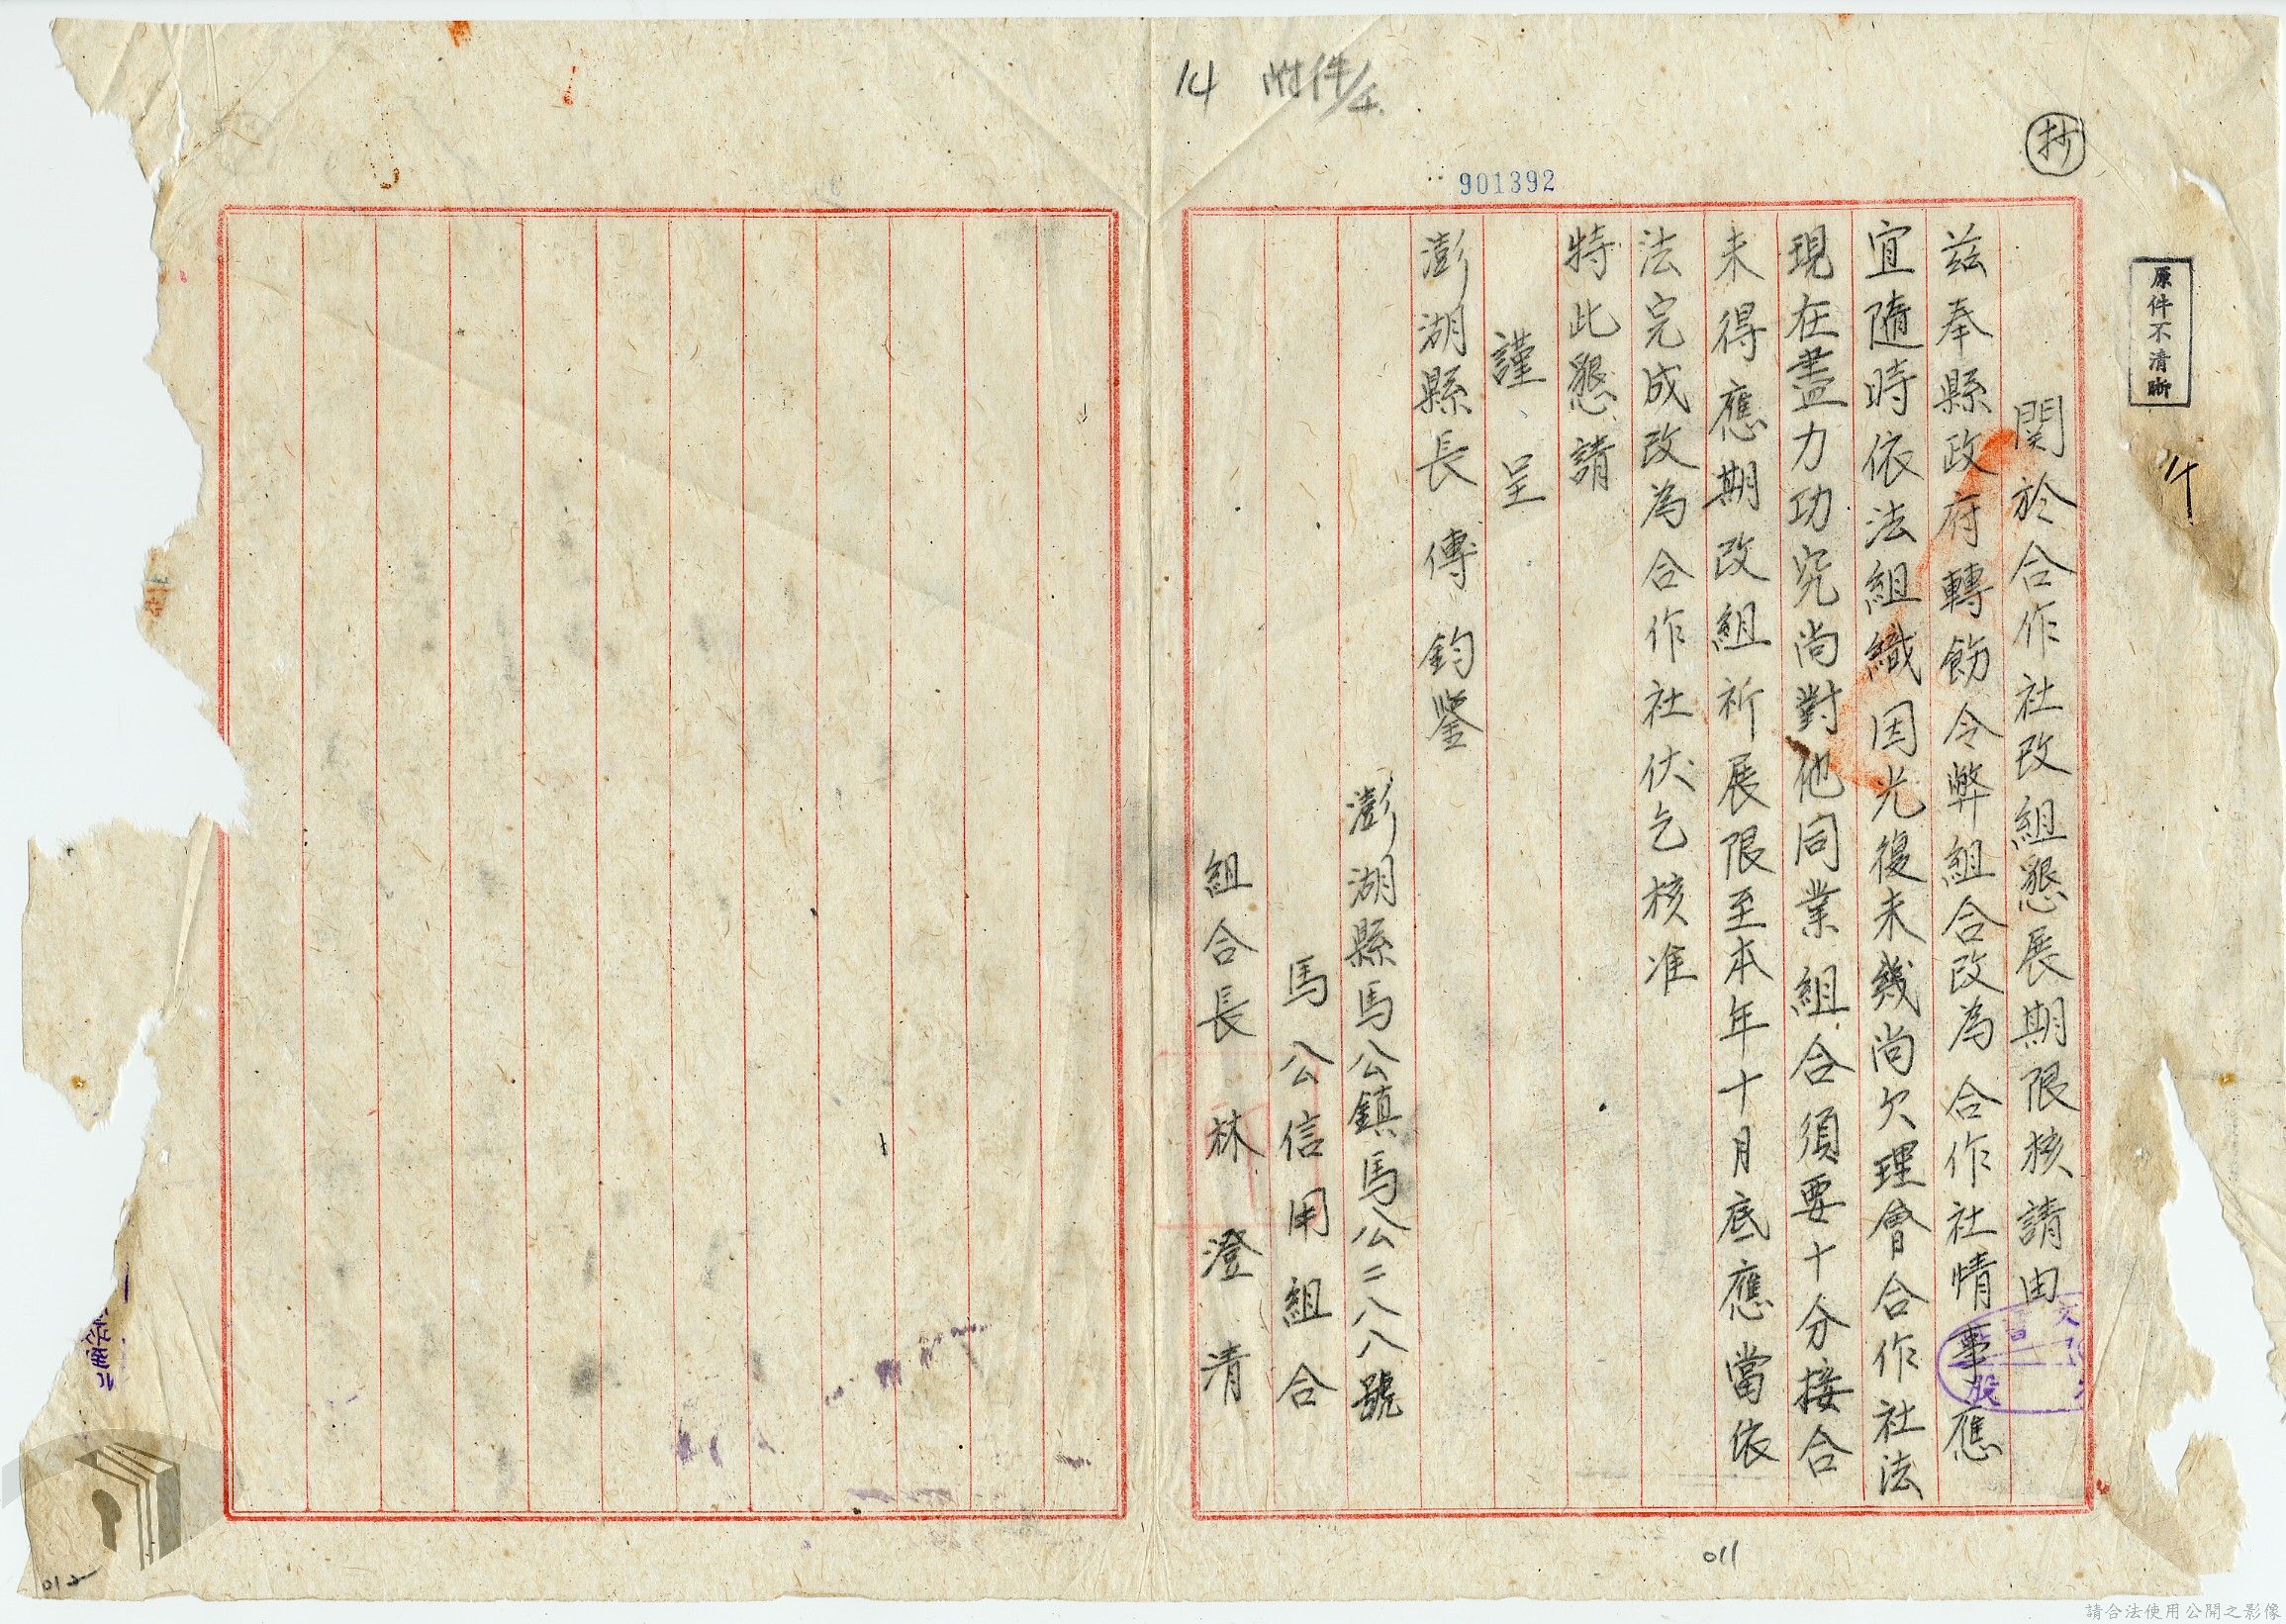 14 附件
抄
901392
原件不清晰
関於合作社改組懇展期限核請由
茲奉縣政府轉飭令弊組合改為合作社情事應
宜隨時依法組織因光復未幾尚欠理會合作社法
現在盡力功究尚對他同業組合須要十分接合
未得應期改組祈展限至本年十月底應當依
法完成改為合作社伏乞核准
特此懇請
謹、呈
澎湖縣長 傅 鈞鑒
澎湖縣馬公鎮馬公二八八號
馬公信用組合
組合長 林 澄 清
011
012
請合法使用公開之影像